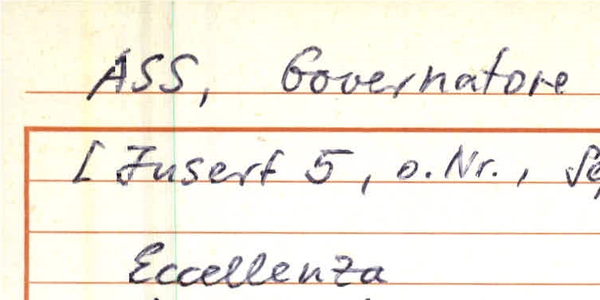 ASS, Governatore
[Insert 5, o.Nr.,
Eccellenza